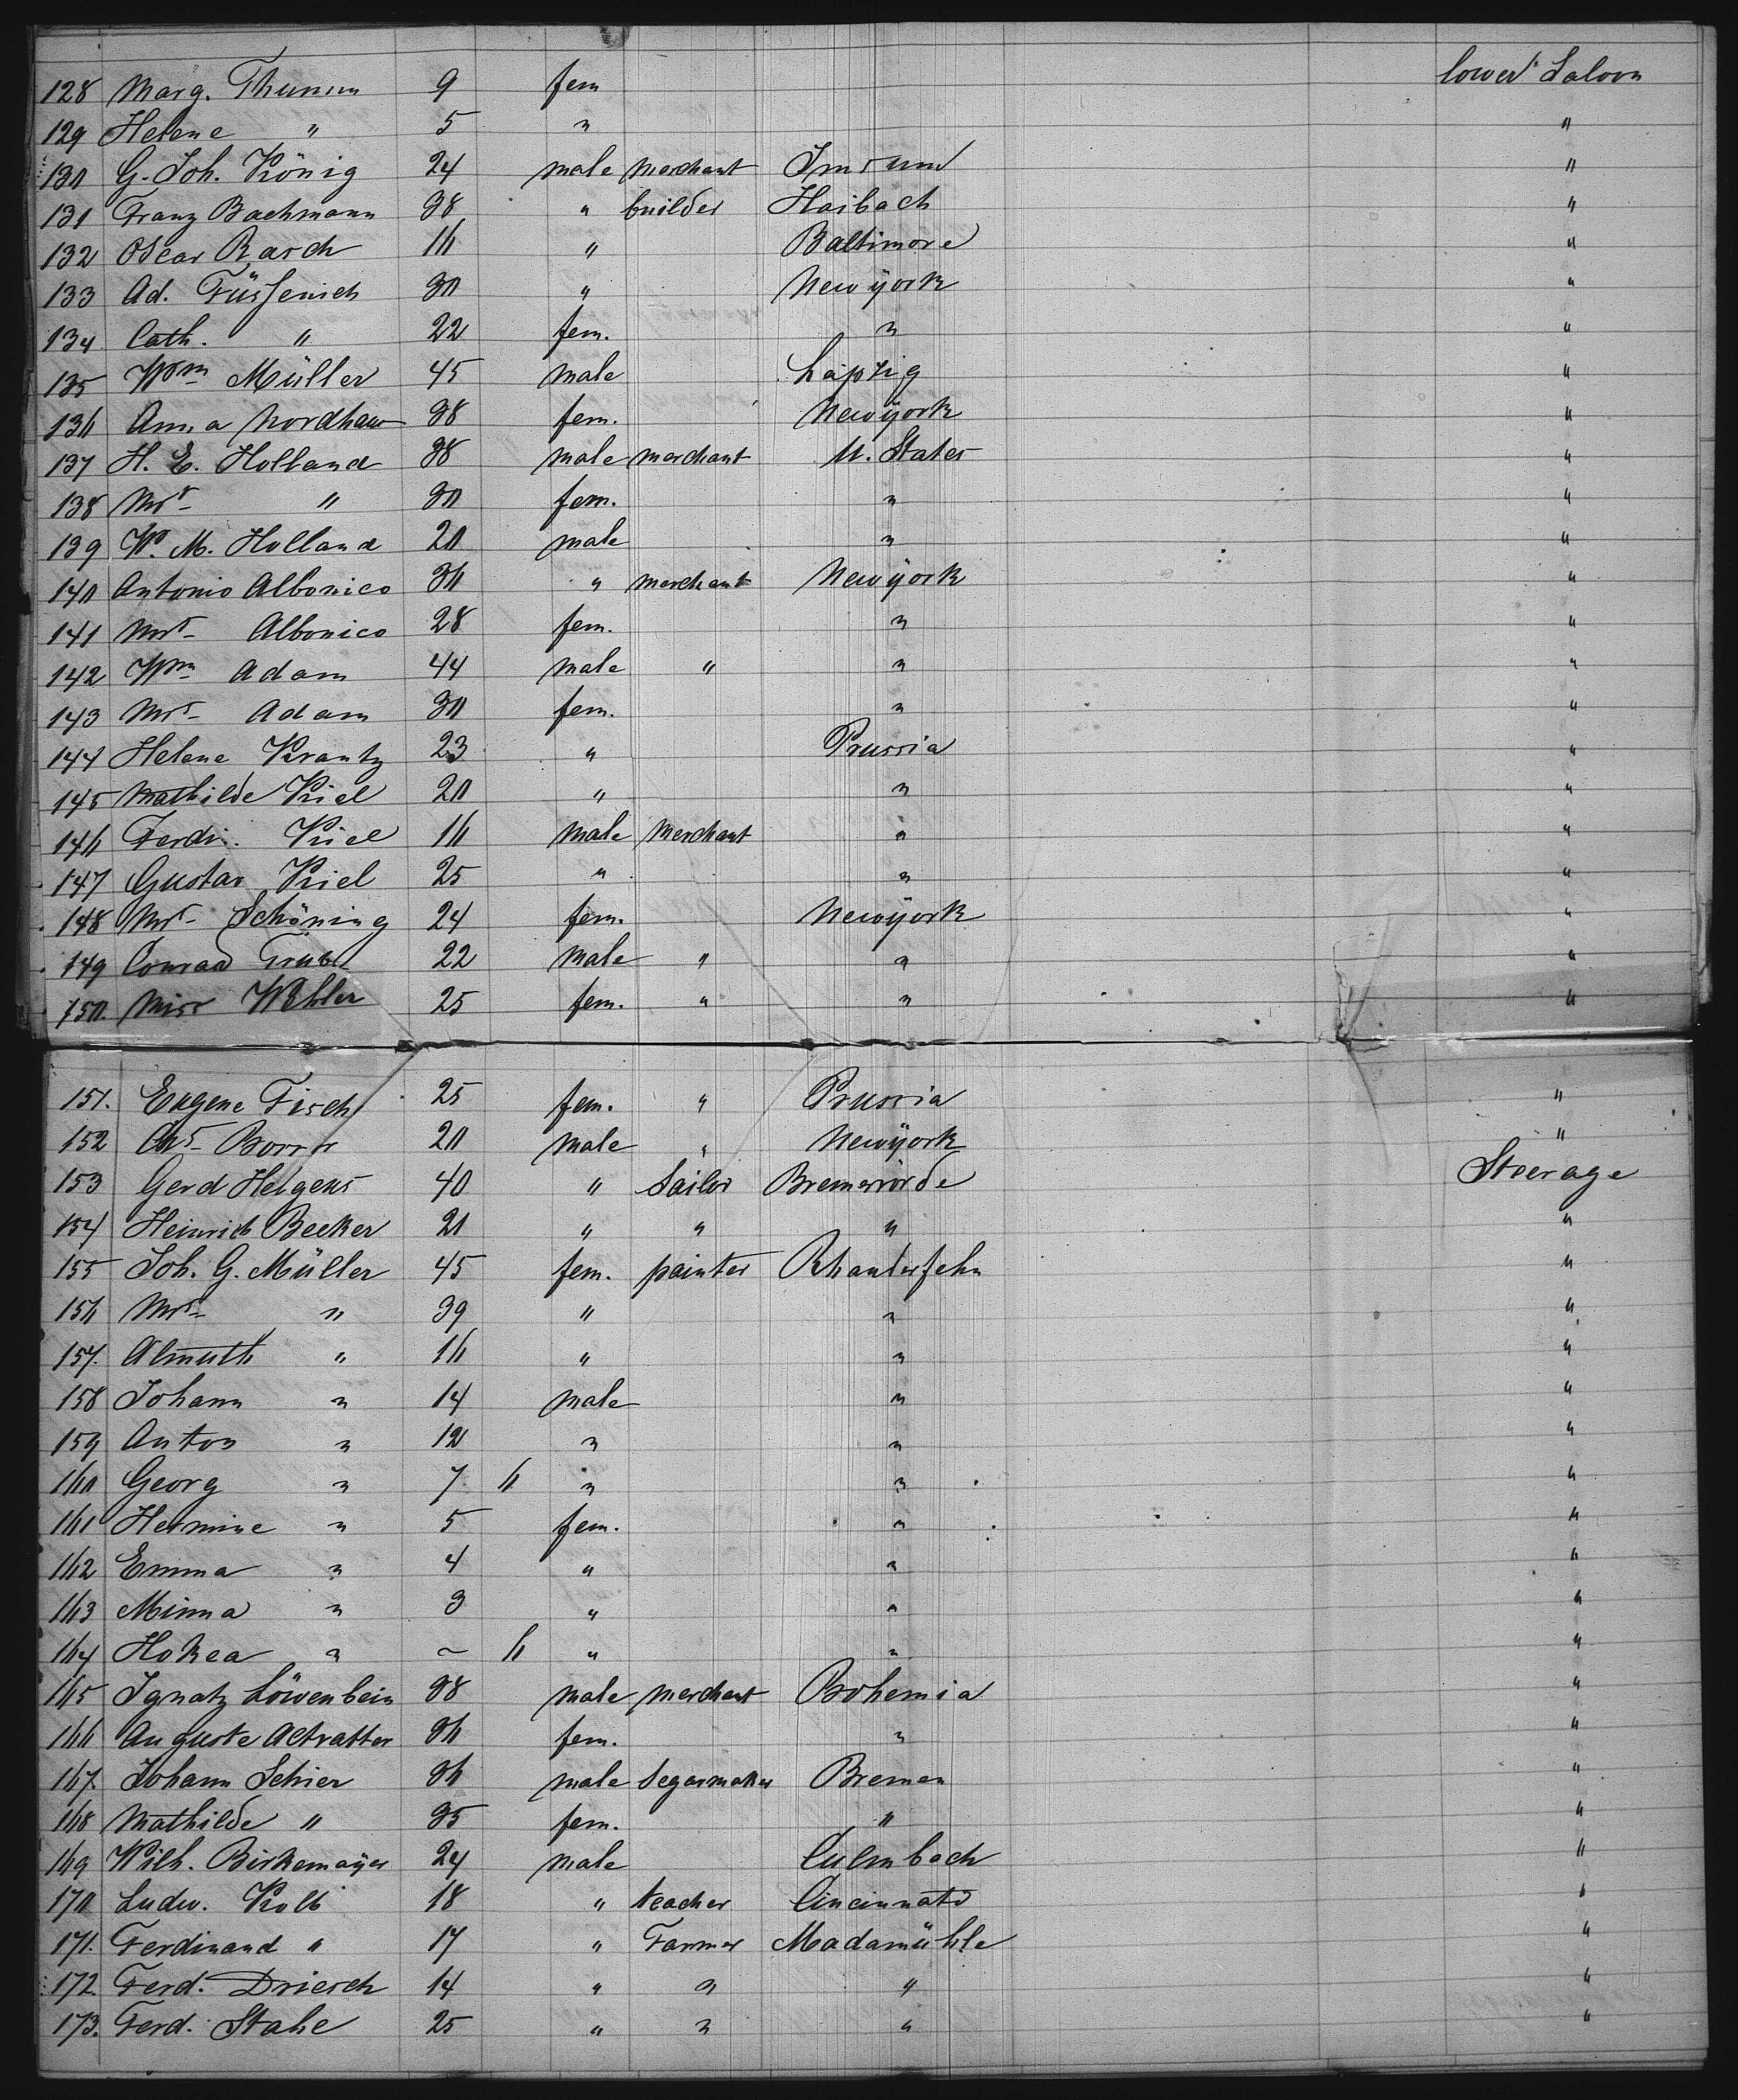 128 Marg. Thumm 9 fem lower Saloon
129 Helene " 5 " "
130 G. Joh. König 24 male merchant Imsum "
131 Franz Bachmann 38 " builder Haibach "
132 Oscar Rasch 16 " Baltimore "
133 Ad. Füssenich 30 " New york "
134 Cath. " 22 fem. " "
135 Wm Müller 45 male Leipzig "
136 Anna Nordhaus 38 fem. New york "
137 H. E. Holland 38 male merchant U. States "
138 Mrs " 30 fem. " "
139 W. M. Holland 20 male " "
140 Antonio Albonico 36 " merchant New york "
141 Mrs Albonico 28 fem. " "
142 Wm Adam 44 male " " "
143 Mrs Adam 30 fem. " "
144 Helene Krantz 23 " Prussia "
145 Mathilde Kiel 20 " " "
146 Ferdi. Kiel 16 male merchant " "
147 Gustav Kiel 25 " " "
148 Mrs Schöning 24 fem. New york "
149 Conrad 22 male " " "
150. Miss Wehler 25 fem. " " "
151. Eugene Fisch 25 fem. " Prussia "
152 Chs 20 male " New york "
153 Gerd Helgens 40 " Sailor Bremervörde Steerage
154 Heinrich Becker 21 " " " "
155 Joh. G. Müller 45 fem. painter Rhauderfehn "
156 Mrs " 39 " " "
157. Almuth " 16 " " "
158 Johann " 14 male " "
159 Anton " 12 " " "
160 Georg " 7 6 " " "
161 Hermine " 5 fem. " "
162 Emma " 4 " " "
163 Minna " 3 " " "
164 Hokea " ~ 6 " " "
165 Ignatz Löwenbein 38 male merchant Bohemia "
166 Auguste 36 fem. " "
167. Johann Schier 36 male Segarmaker Bremen "
168 Mathilde " 35 fem. " "
169 Wilh. Birkemayer 24 male Culmbach "
170 Ludw. Kolb 18 " teacher Cincinnati "
171. Ferdinand " 17 " Farmer Madamühle "
172. Ferd. Driesch 14 " " " "
173. Ferd. Stahe 25 " " " "